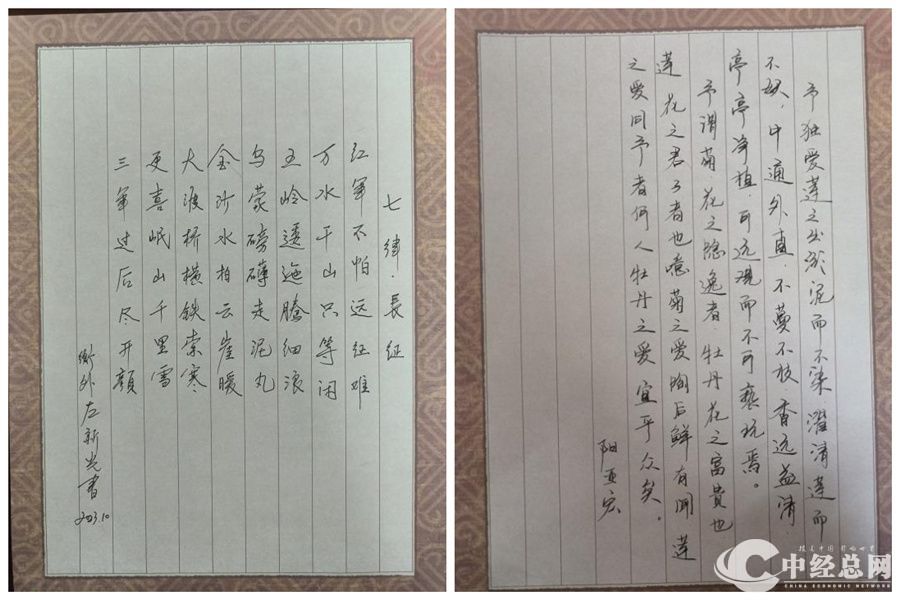 七律·長征
红军不怕远征难
万水千山只等闲
五岭逶迤腾细浪
乌蒙磅礴走泥丸
金沙水拍云崖暖
大渡桥横铁索寒
更喜岷山千里雪
三军过后尽开颜
衡外左新光書
2023.10
予独爱莲之出於泥而不染濯清涟而
不妖，中通外直，不蔓不枝，香远益清，
亭亭净植，可远观而不可亵玩焉。
予谓菊花之隐逸者牡丹花之富貴也
莲花之君子者也噫菊之爱陶后鲜有闻莲
之爱同予者何人牡丹之爱宜乎众矣。
阳亚宏
中经总网
CHINA ECONOMIC NETWORK